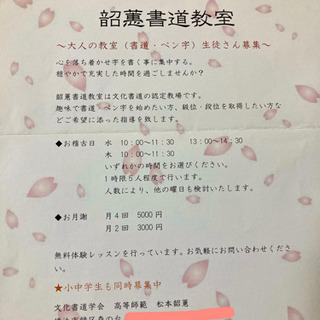 韶薫書道教室
～大人の教室（書道・ペン字）生徒さん募集～
心を落ち着かせ字を書く事に集中する。
穏やかで充実した時間を過ごしませんか？
韶薫書道教室は文化書道の認定教場です。
趣味で書道・ペン字を始めたい方、級位・段位を取得したい方な
どご希望に添った指導を致します。
◆お稽古日 水 10：00～11：30 13：00～14：30
木 10：00～11：30
いずれかの時間をお選びください。
1時限5人程度で行います。
人数により、他の曜日も検討いたします。
◆お月謝 月4回 5000円
月2回 3000円
無料体験レッスンを行っています。お気軽にお問い合わせくださ
い。
★小中学生も同時募集中
文化書道学会 高等師範 松本韶薫